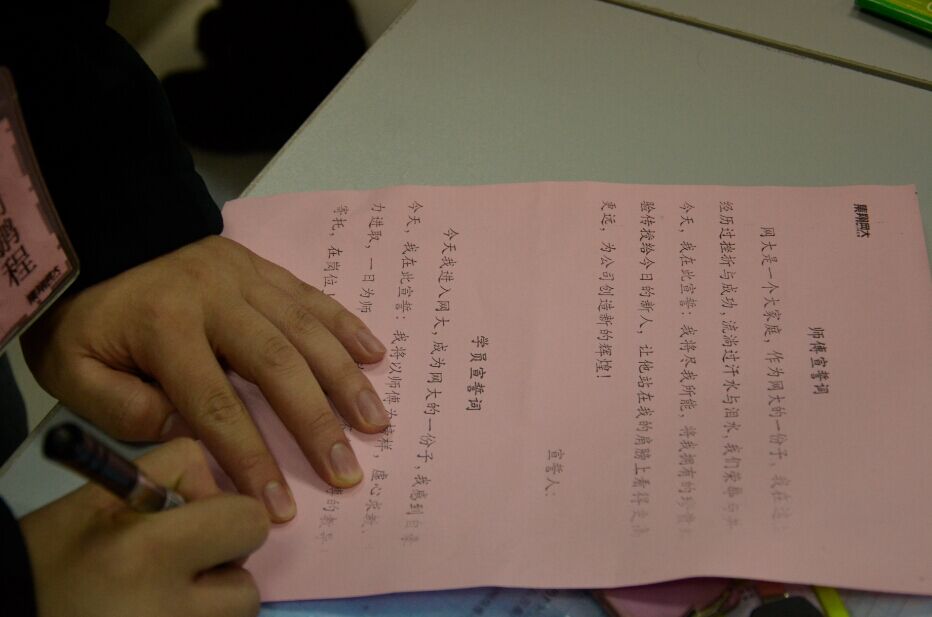 集翔网大
师傅宣誓词
网大是一个大家庭，作为网大的一份子，我在这
经历过挫折与成功，流淌过汗水与泪水，我们荣辱与共
今天，我在此宣誓：我将尽我所能，将我拥有的珍贵
验传授给今日的新人，让他站在我的肩膀上看得更高
更远，为公司创造新的辉煌！
宣誓人：
学员宣誓词
今天我进入网大，成为网大的一份子，我感到自豪
今天，我在此宣誓：我将以师傅为榜样，虚心求教、
力进取，一日为师
寄托，在岗位 的教导
鹏程